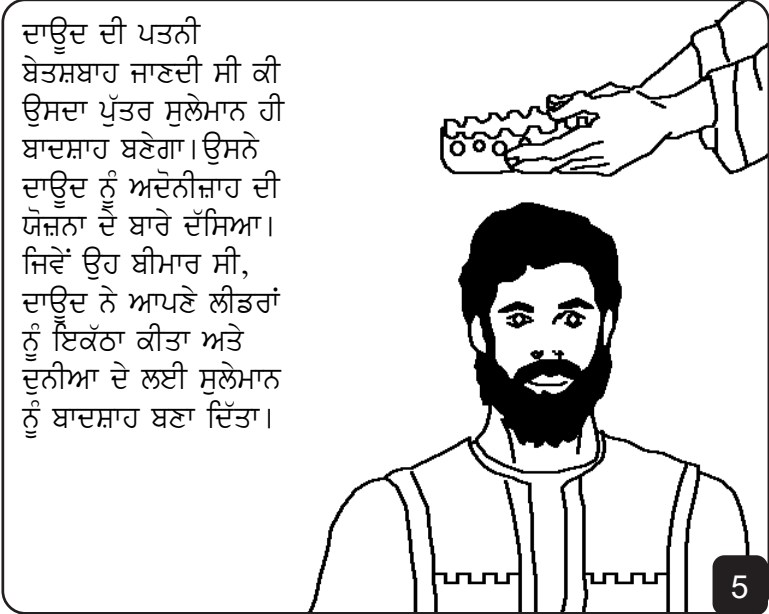 ਦਾਊਦ ਦੀ ਪਤਨੀ
ਬੇਤਸ਼ਬਾਹ ਜਾਣਦੀ ਸੀ ਕੀ
ਉਸਦਾ ਪੁੱਤਰ ਸੁਲੇਮਾਨ ਹੀ
ਬਾਦਸ਼ਾਹ ਬਣੇਗਾ।ਉਸਨੇ
ਦਾਊਦ ਨੂੰ ਅਦੋਨੀਜ਼ਾਹ ਦੀ
ਯੋਜ਼ਨਾ ਦੇ ਬਾਰੇ ਦੱਸਿਆ।
ਜਿਵੇਂ ਉਹ ਬੀਮਾਰ ਸੀ,
ਦਾਊਦ ਨੇ ਆਪਣੇ ਲੀਡਰਾਂ
ਨੂੰ ਇਕੱਠਾ ਕੀਤਾ ਅਤੇ
ਦੁਨੀਆ ਦੇ ਲਈ ਸੁਲੇਮਾਨ
ਨੂੰ ਬਾਦਸ਼ਾਹ ਬਣਾ ਦਿੱਤਾ।
5